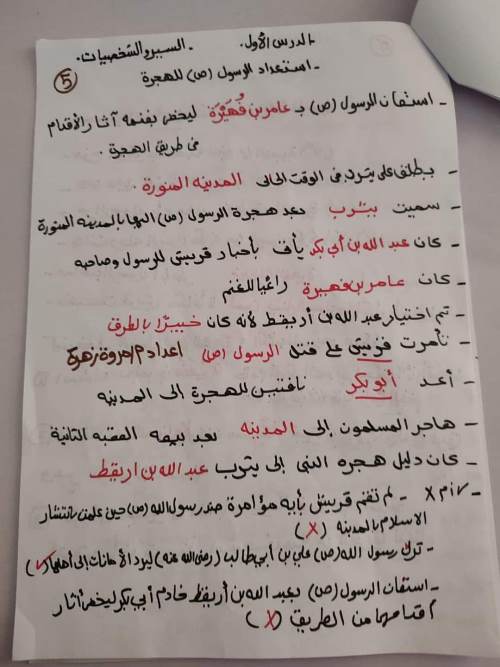 الدرس الأول. - السير والشخصيات.
5
- استعداد الرسول (ص) للهجرة
- استعان الرسول (ص) بـ عامر بن فُهَيْرَة ليخفى بغنمه آثار الأقدام
فى طريق الهجرة.
- يطلق على يثرب فى الوقت الحالى المدينه المنورة.
- سميت يثرب بعد هجرة الرسول (ص) اليها بالمدينه المنورة
- كان عبد الله بن أبي بكر يأتى بأخبار قريش للرسول وصاحبه
- كان عامر بن فهيرة راعيا للغنم
- تم اختيار عبد الله بن أريقط لأنه كان خبيرًا بالطرق
- تآمرت قريش على قتل الرسول (ص) اعداد م/مروة زهرة
- أعد أبو بكر ناقتين للهجرة إلى المدينه
- هاجر المسلمون إلى المدينه بعد بيعه العقبه الثانية
- كان دليل هجره النبى إلى يثرب عبد الله بن اريقط
- لم تقم قريش بأيه مؤامرة ضد رسول الله (ص) حين علمت بانتشار
الاسلام بالمدينه (X)
- ترك رسول الله (ص) علي بن أبي طالب (رضى الله عنه) ليرد الأمانات إلى أهلها (✓)
- استعان الرسول (ص) بعبد الله بن أريقط خادم أبي بكر ليخفى آثار
أقدامهما من الطريق (X)